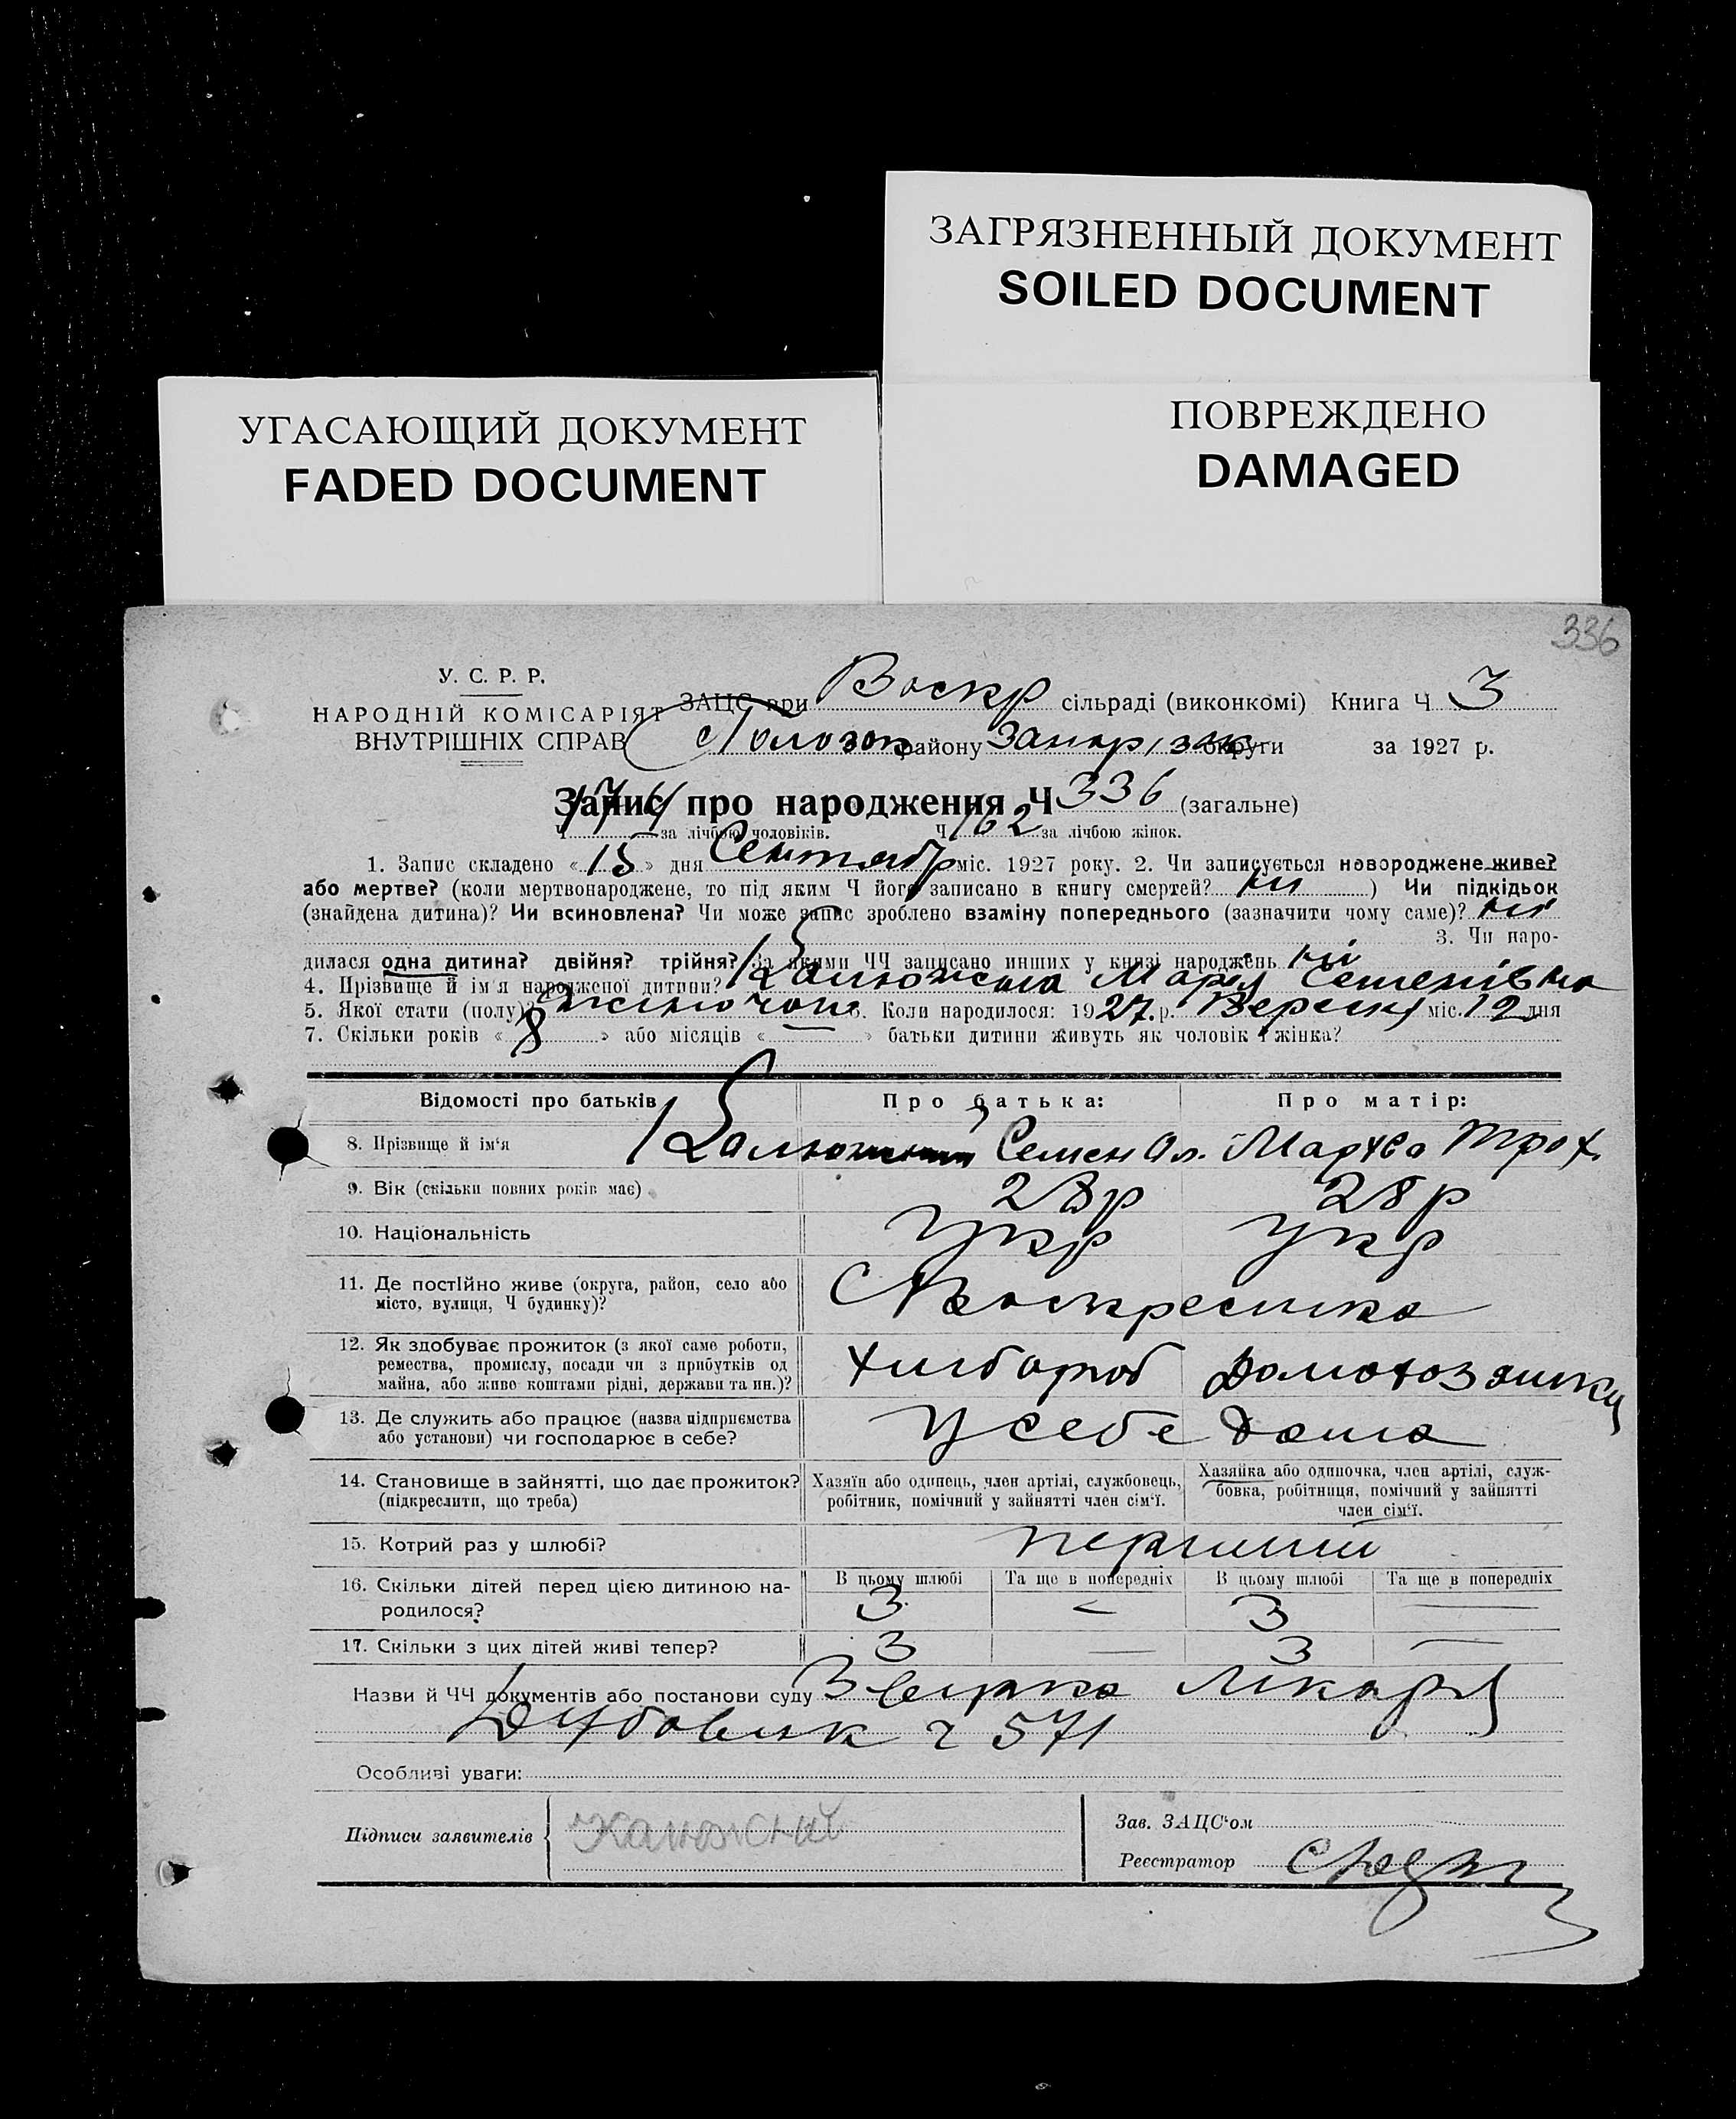 ЗАГРЯЗНЕННЫЙ ДОКУМЕНТ
SOILED DOCUMENT
УГАСАЮЩИЙ ДОКУМЕНТ
FADED DOCUMENT
ПОВРЕЖДЕНО
DAMAGED
336
У. С. Р. Р.
НАРОДНІЙ КОМІСАРІЯТ
ВНУТРІШНІХ СПРАВ
ЗАЦС при Воскр сільраді (виконкомі) Книга Ч 3
Пологов району Запоріз округи за 1927 р.
Запис про народження Ч 336 (загальне)
Ч 174 за лічбою чоловіків. Ч 162 за лічбою жінок.
1. Запис складено «15» дня Сентябр міс. 1927 року. 2. Чи записується новороджене живе?
або мертве? (коли мертвонароджене, то під яким Ч його записано в книгу смертей? ні ) Чи підкідьок
(знайдена дитина)? Чи всиновлена? Чи може запис зроблено взаміну попереднього (зазначити чому саме)? ні
3. Чи наро-
дилася одна дитина? двійня? трійня? За якими ЧЧ записано инших у книзі народжень ні
4. Прізвище й ім'я народженої дитини? Калюжна Марія Семенівна
5. Якої стати (полу)? жіночої 6. Коли народилося: 1927 р. Вересня міс. 12 дня
7. Скільки років «8» або місяців «—» батьки дитини живуть як чоловік і жінка?
Відомості про батьків Про батька: Про матір:
8. Прізвище й ім'я Калюжний Семен Ол. Марфа Троф.
9. Вік (скільки повних років має) 28 р 28 р
10. Національність Укр Укр
11. Де постійно живе (округа, район, село або
місто, вулиця, Ч будинку)? С Воскресенка
12. Як здобуває прожиток (з якої саме роботи,
ремества, промислу, посади чи з прибутків од
майна, або живе коштами рідні, держави та ин.)? хлібороб домохозяйка
13. Де служить або працює (назва підприємства
або установи) чи господарює в себе? У себе дома
14. Становище в зайнятті, що дає прожиток?
(підкреслити, що треба)
Хазяїн або одинець, член артілі, службовець,
робітник, помічний у зайнятті член сім'ї.
Хазяйка або одиночка, член артілі, служ-
бовка, робітниця, помічний у зайнятті
член сім'ї.
15. Котрий раз у шлюбі? перший
В цьому шлюбі Та ще в попередніх В цьому шлюбі Та ще в попередніх
16. Скільки дітей перед цією дитиною на-
родилося? 3 — 3 —
17. Скільки з цих дітей живі тепер? 3 — 3 —
Назви й ЧЧ документів або постанови суду Звістка Лікаря
Дубовик ч 571
Особливі уваги:
Підписи заявителів Калюжний
Зав. ЗАЦС'ом
Реєстратор